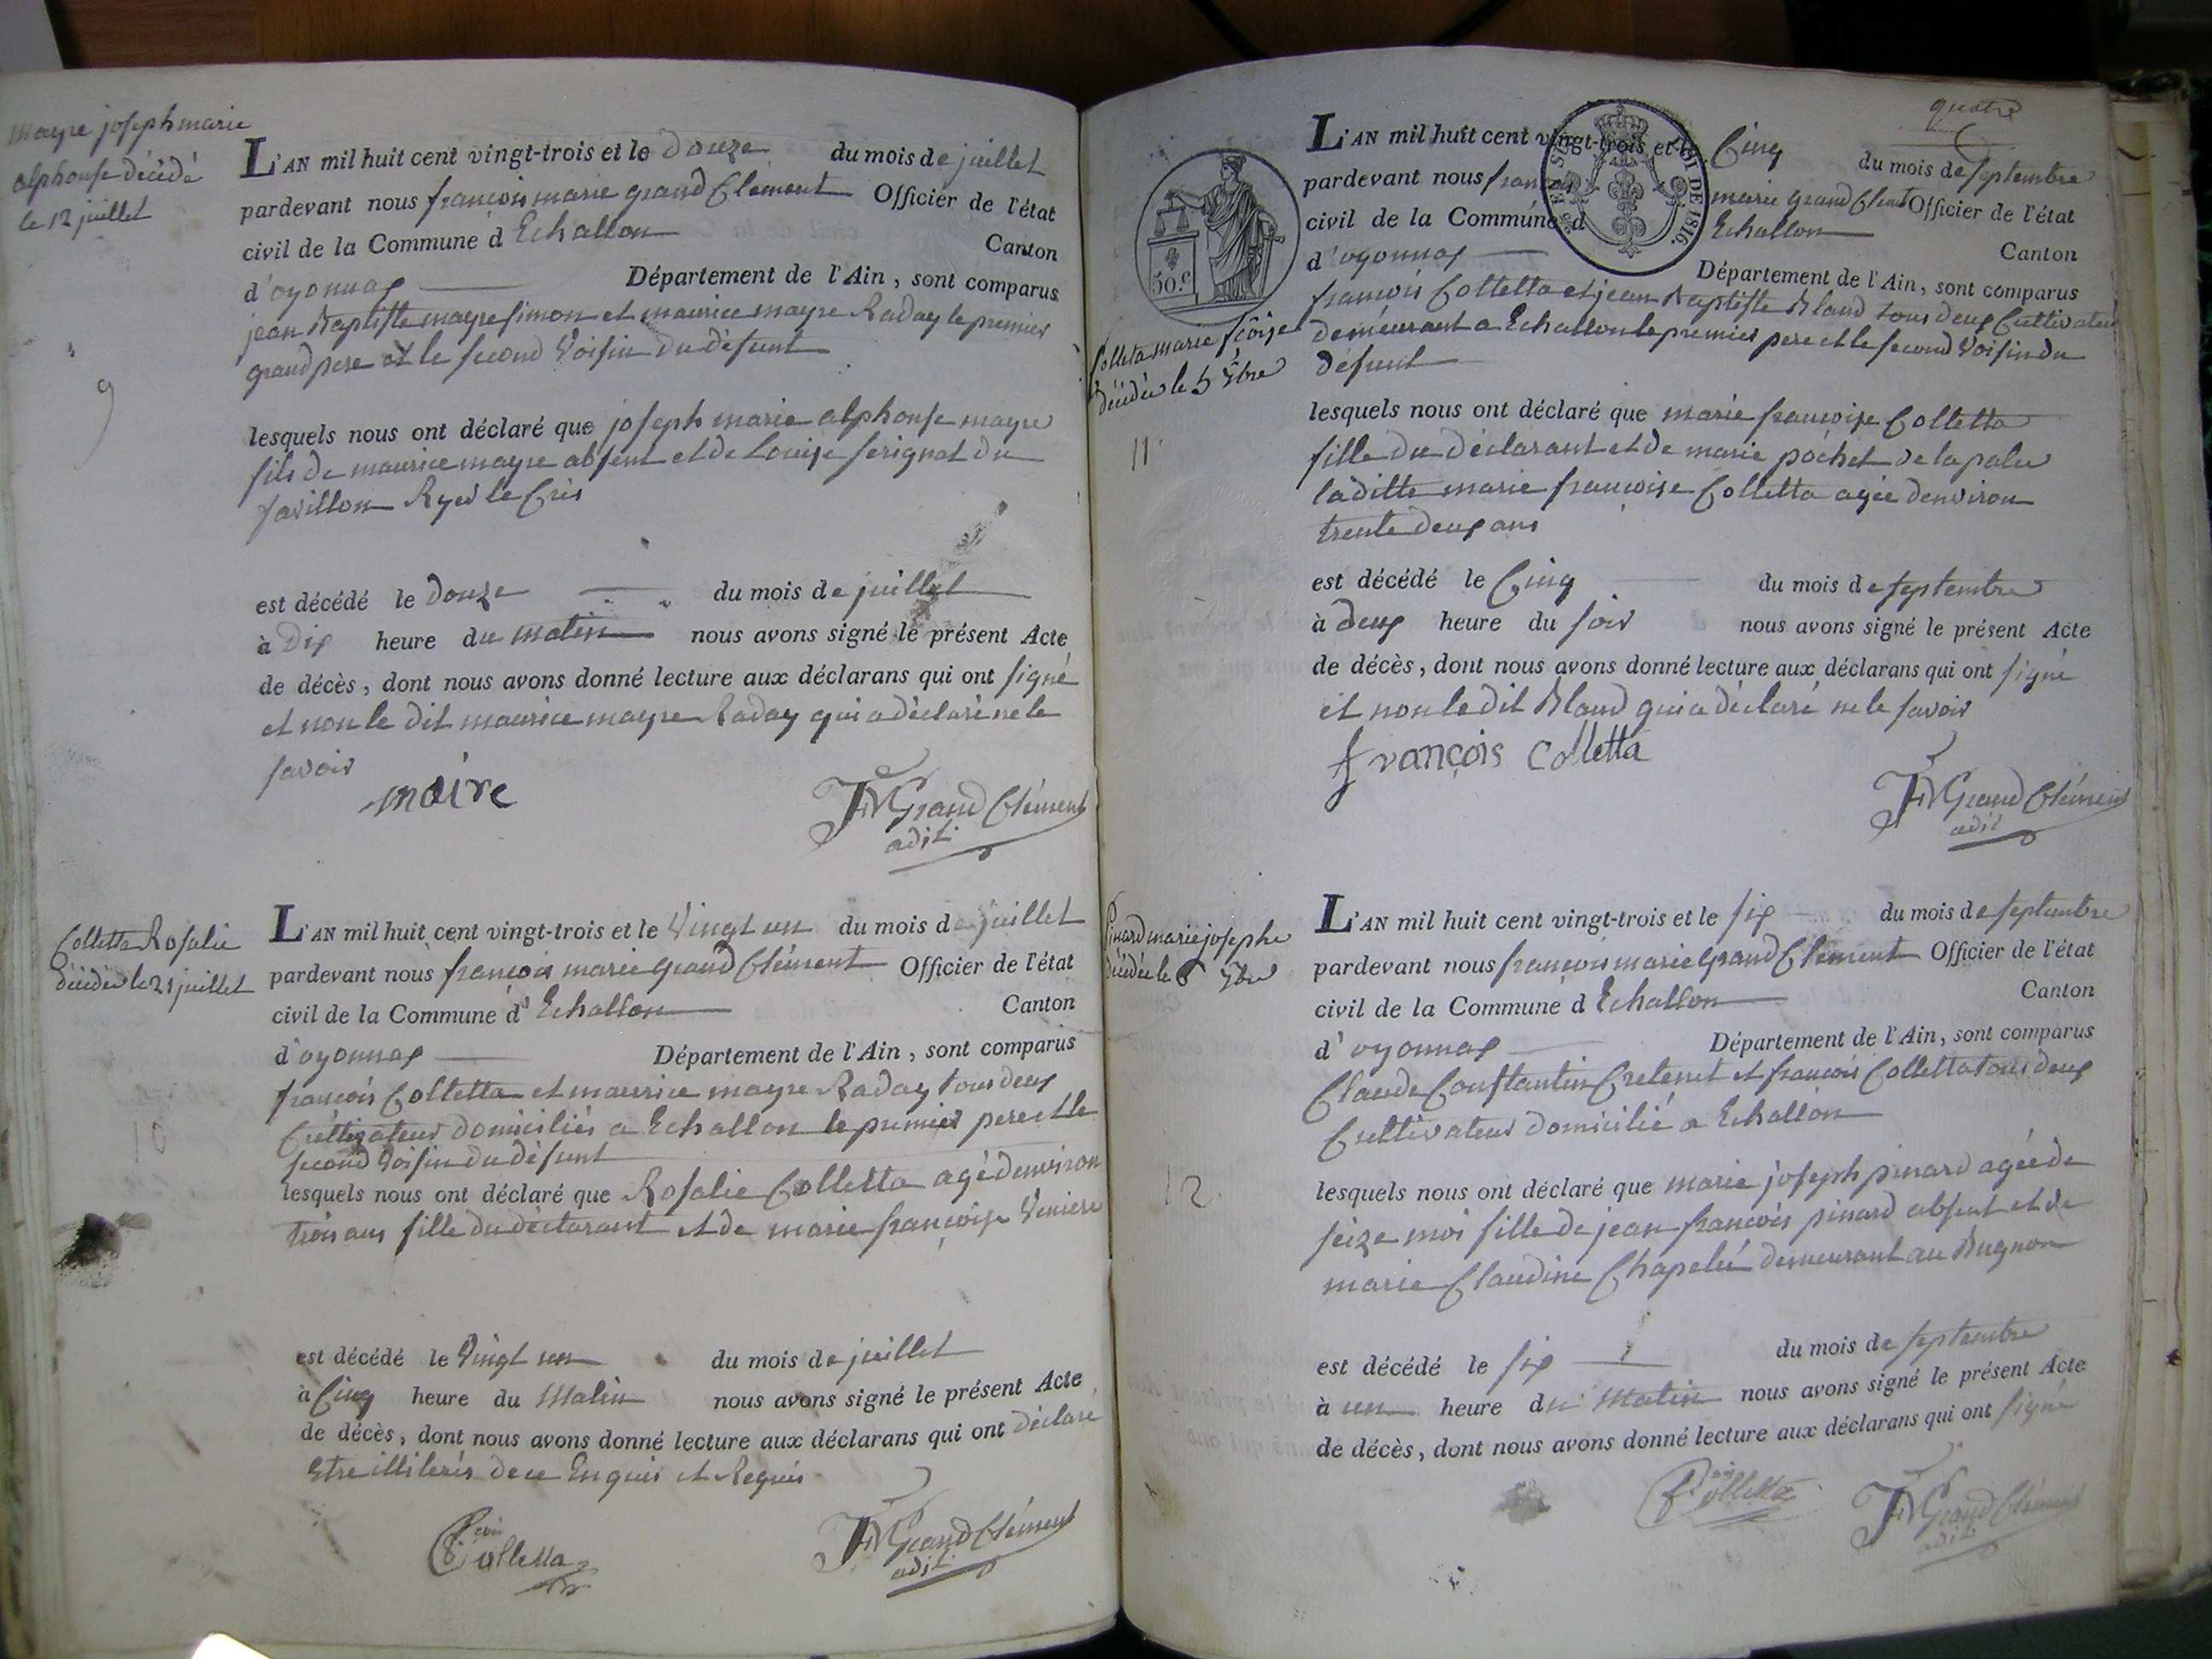 mayre joseph marie
alphonse décédé
le 12 juillet
9
L'AN mil huit cent vingt-trois et le douze du mois de juillet
pardevant nous françois marie grand Clement Officier de l'état
civil de la Commune d Echallon Canton
d'oyonnax Département de l'Ain, sont comparus
jean Baptiste mayre simon et maurice mayre Raday le premier
grand pere et le second voisin du défunt
lesquels nous ont déclaré que joseph marie alphonse mayre
fils de maurice mayre absent et de Louise serignat du
favillon
est décédé le douze du mois de juillet
à dix heure du matin nous avons signé le présent Acte
de décès, dont nous avons donné lecture aux déclarans qui ont signé
et non le dit maurice mayre Raday qui a déclaré ne le
savoir
maire
FM Grand Clément
adjt.
Colletta Rosalie
décédée le 21 juillet
10
L'AN mil huit cent vingt-trois et le vingt un du mois de juillet
pardevant nous françois marie grand Clément Officier de l'état
civil de la Commune d' Echallon Canton
d'oyonnax Département de l'Ain, sont comparus
françois Colletta et maurice mayre Raday tous deux
Cultivateur domiciliés a Echallon le premier pere et le
second voisin du défunt
lesquels nous ont déclaré que Rosalie Colletta agé denviron
trois ans fille du déclarant et de marie françoise
est décédé le vingt un du mois de juillet
à Cinq heure du Matin nous avons signé le présent Acte
de décès, dont nous avons donné lecture aux déclarans qui ont déclaré
Etre illiterés de ce Enquis et Requis
Colletta
FM Grand Clément
adjt.
quatre
50.c
LOI DE 1816.
Colleta marie fcoise
décédée le 5 7bre
11
L'AN mil huit cent vingt-trois et le Cinq du mois de septembre
pardevant nous françois marie grand Clemt Officier de l'état
civil de la Commune d Echallon
d'oyonnax Canton
Département de l'Ain, sont comparus
francois Colletta et jean Baptiste Bland tous deux Cultivateur
demeurant a Echallon le premier pere et le second voisin du
défunt
lesquels nous ont déclaré que marie françoise Colletta
fille du déclarant et de marie pochet de la palud
laditte marie françoise Colletta agée denviron
trente deux ans
est décédé le Cinq du mois de septembre
à deux heure du soir nous avons signé le présent Acte
de décès, dont nous avons donné lecture aux déclarans qui ont signé
et non le dit Bland qui a déclaré ne le savoir
françois colletta
FM Grand Clément
adjt
Pinard marie josephe
décédée le 6 7bre
12
L'AN mil huit cent vingt-trois et le six du mois de septembre
pardevant nous francois marie Grand Clement Officier de l'état
civil de la Commune d Echallon Canton
d' oyonnax Département de l'Ain, sont comparus
Claude Constantin Cretenet et francois Colletta tous deux
Cultivateur domicilié a Echallon
lesquels nous ont déclaré que marie joseph pinard agée de
seize moi fille de jean francois pinard absent et de
marie Claudine Chapelu demeurant au Bugnon
est décédé le six du mois de septembre
à un heure du Matin nous avons signé le présent Acte
de décès, dont nous avons donné lecture aux déclarans qui ont signé
Colletta
FM Grand Clément
adjt